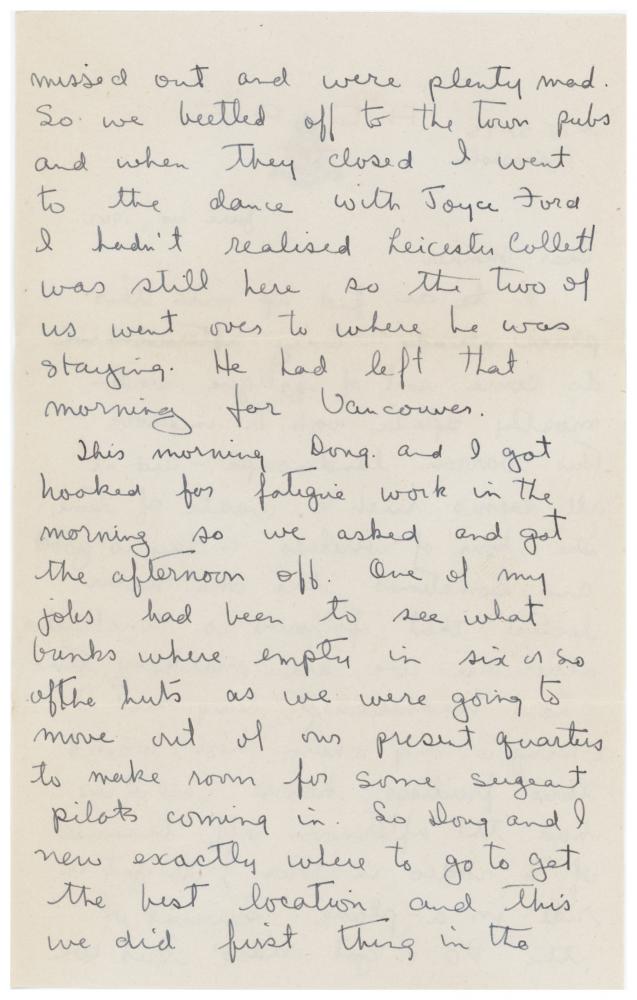 missed out and were plenty mad.
So we beetled off to the town pubs
and when they closed I went
to the dance with Joyce Ford
I hadn't realised Leicester Collett
was still here so the two of
us went over to where he was
staying. He had left that
morning for Vancouver.
This morning Doug. and I got
hooked for fatigue work in the
morning so we asked and got
the afternoon off. One of my
jobs had been to see what
bunks where empty in six or so
of the huts as we were going to
move out of our present quarters
to make room for some sergeant
pilots coming in. So Doug and I
new exactly where to go to get
the best location and this
we did first thing in the